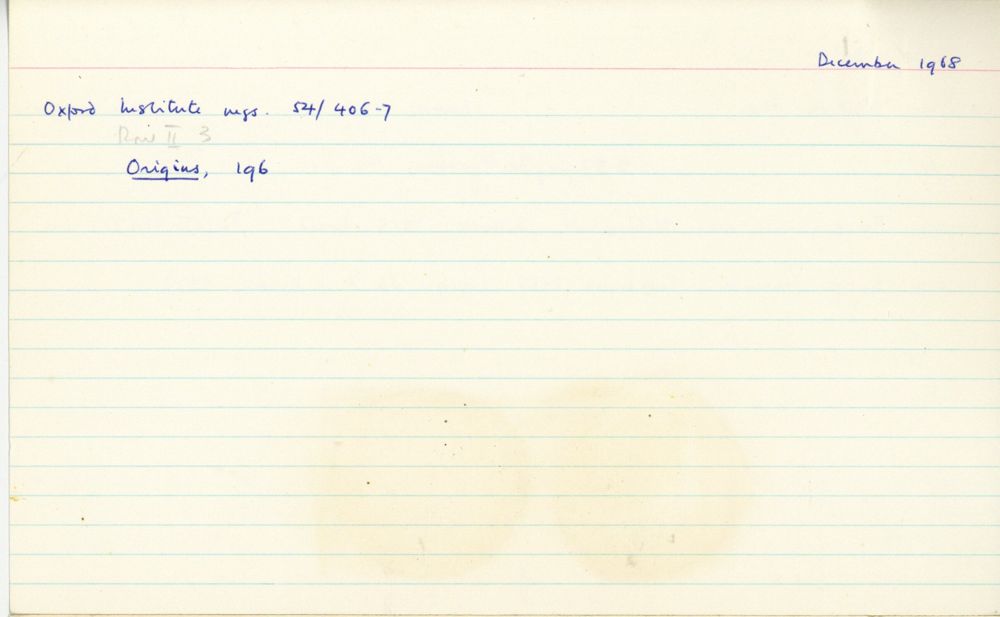 December 1968
Oxford Institute negs. 54/406-7
II 3
Origins, 196